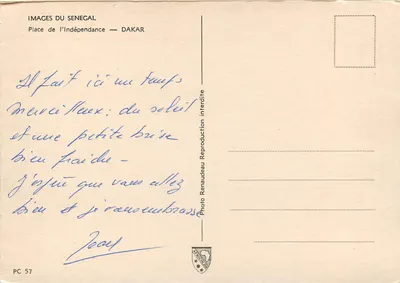 IMAGES DU SENEGAL
Place de l'Indépendance — DAKAR
Il fait ici un temps
merveilleux : du soleil
et une petite brise
bien fraîche —
J'espère que vous allez
bien et je vous embrasse
Photo Renaudeau Reproduction interdite
PC 57